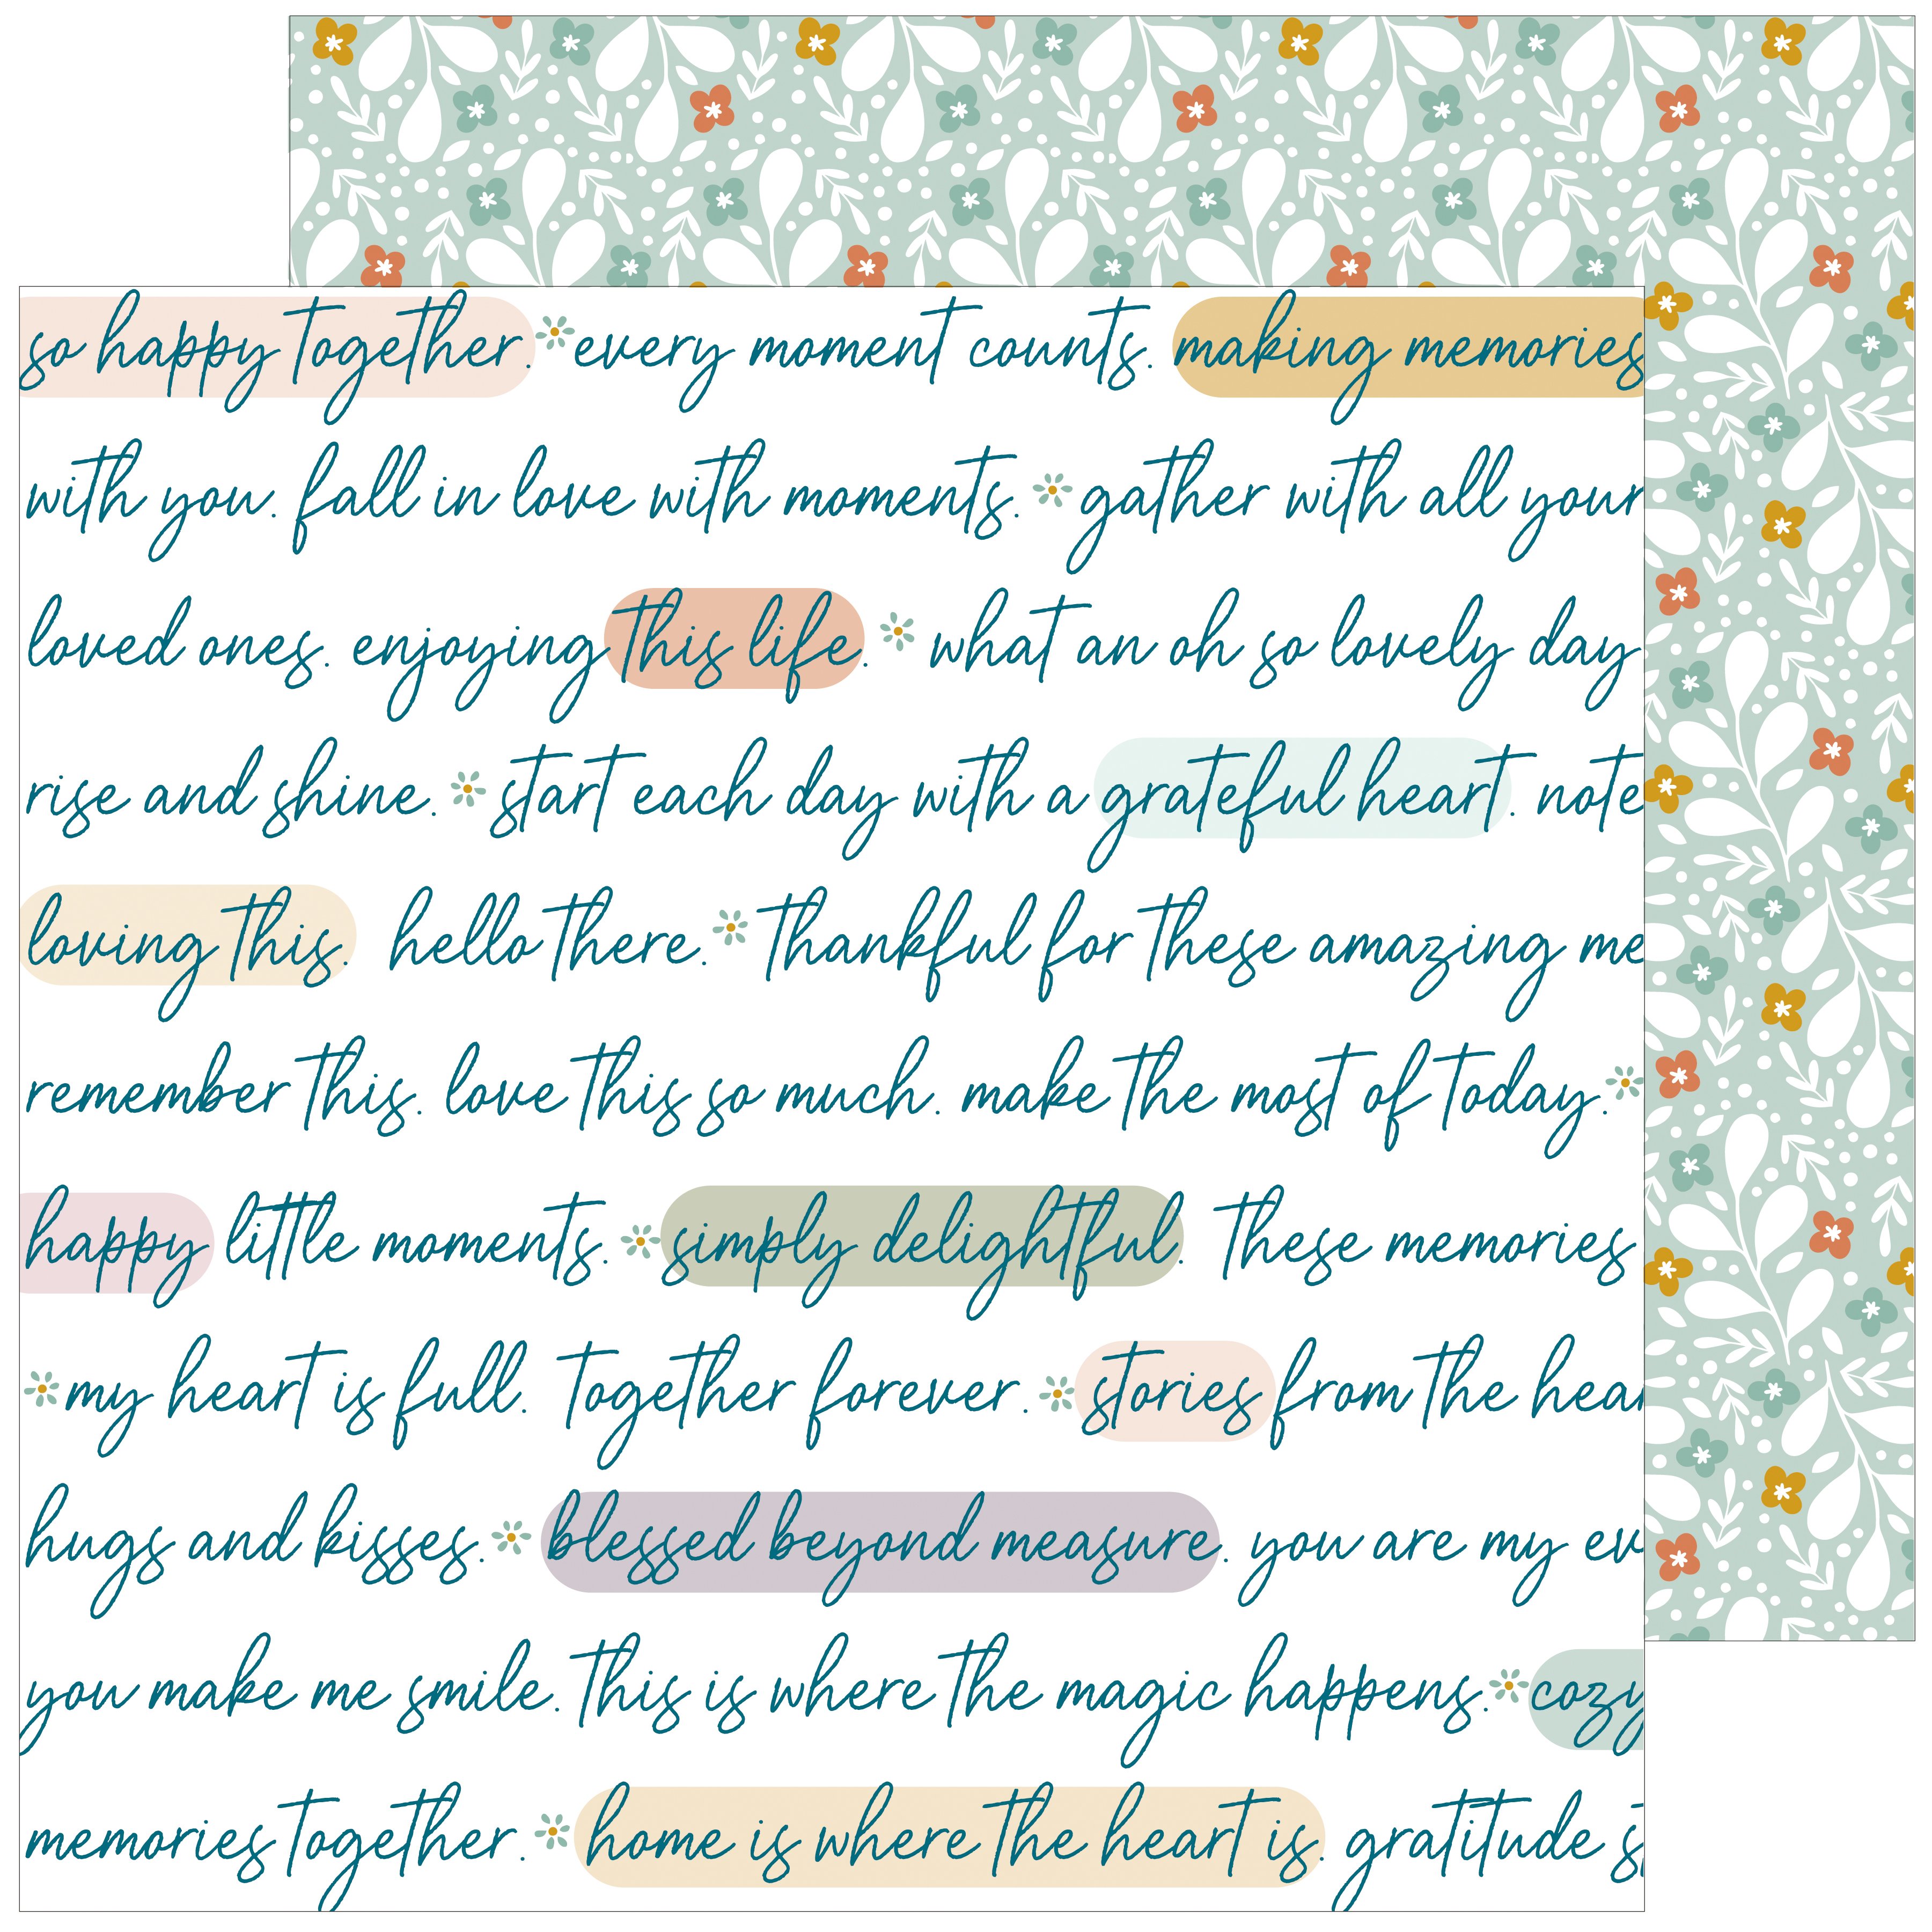 so happy together. every moment counts. making memories
with you. fall in love with moments. gather with all your
loved ones. enjoying this life. what an oh so lovely day
rise and shine. start each day with a grateful heart. note
loving this. hello there. thankful for these amazing me
remember this. love this so much. make the most of today.
happy little moments. simply delightful. These memories
my heart is full. Together forever. stories from the hear
hugs and kisses. blessed beyond measure. you are my ev
you make me smile. This is where the magic happens. cozy
memories together. home is where the heart is. gratitude